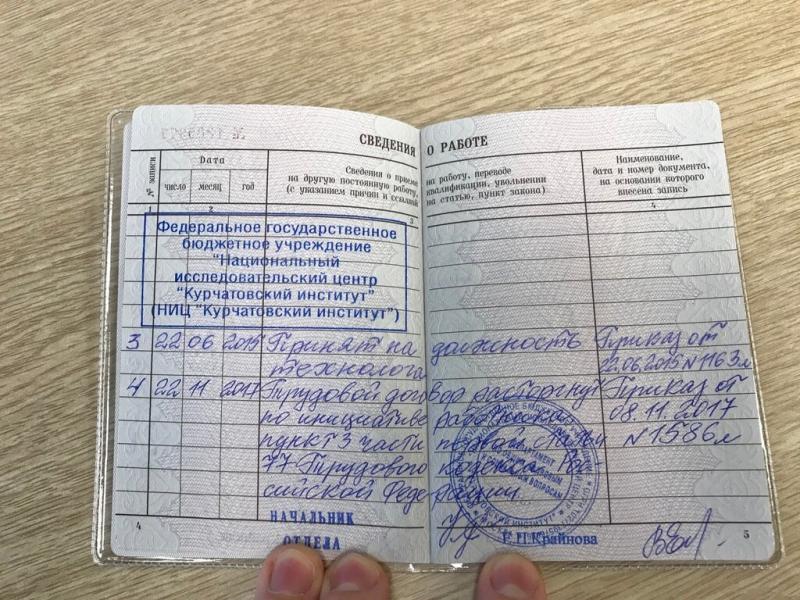 СВЕДЕНИЯ О РАБОТЕ
№ записи
Дата
число месяц год
Сведения о приеме на работу, переводе
на другую постоянную работу, квалификации, увольнении
(с указанием причин и ссылкой на статью, пункт закона)
Наименование,
дата и номер документа,
на основании которого
внесена запись
1 2 3 4
Федеральное государственное
бюджетное учреждение
"Национальный
исследовательский центр
"Курчатовский институт"
(НИЦ "Курчатовский институт")
3 22 06 2015 Принят на должность Приказ от
технолога 22.06.2015 N 1163л
4 22 11 2017 Трудовой договор расторгнут Приказ от
по инициативе работника 08.11.2017
пункт 3 части первой статьи N 1586л
77 Трудового кодекса Рос
сийской Федерации
НАЧАЛЬНИК
ОТДЕЛА
Е.П.Крайнова
4 5